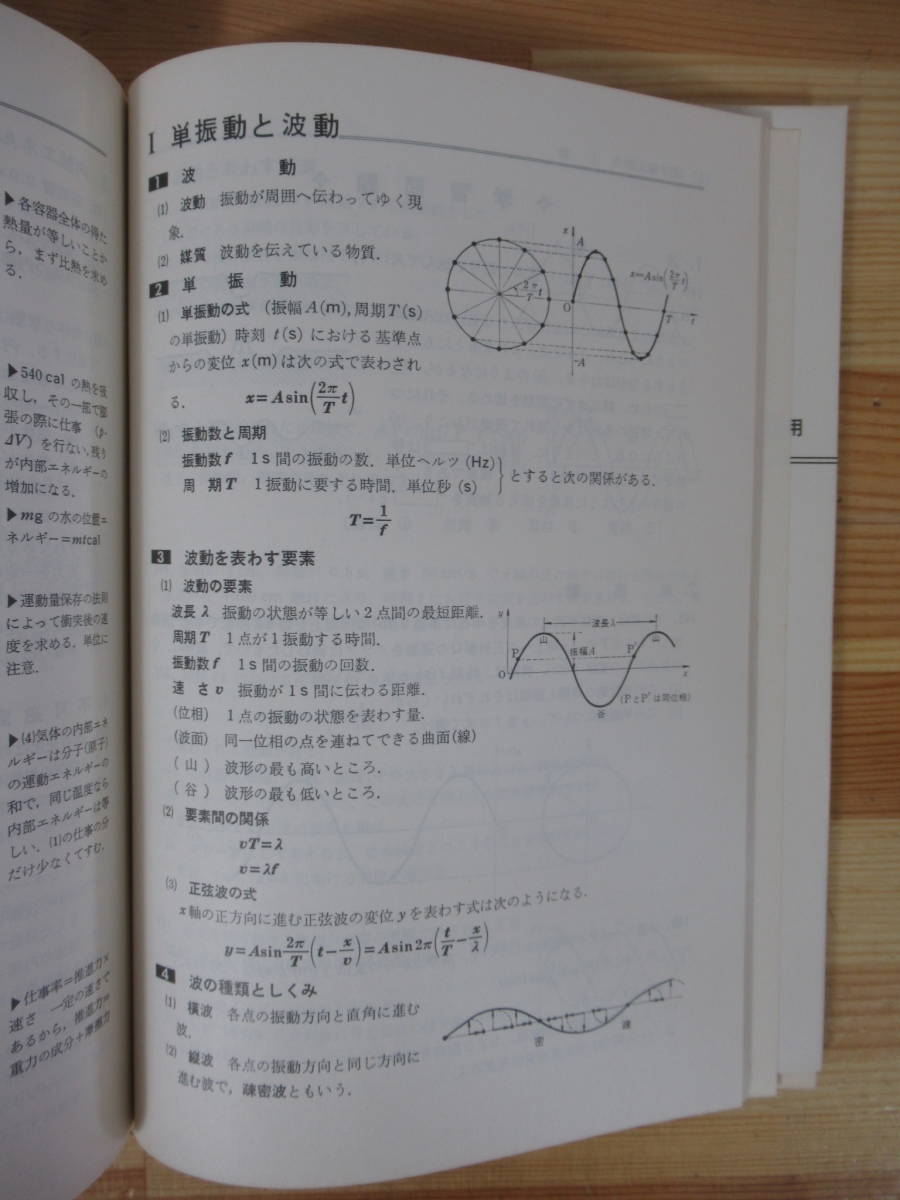 ▶各容器全体の得た
熱量が等しいことか
ら，まず比熱を求め
る．
▶540calの熱を吸
収し，その一部で膨
張の際に仕事（p・
ΔV）を行ない，残り
が内部エネルギーの
増加になる．
▶mgの水の位置エ
ネルギー＝mtcal
▶運動量保存の法則
によって衝突後の速
度を求める．単位に
注意．
▶⑷気体の内部エネ
ルギーは分子(原子)
の運動エネルギーの
和で，同じ温度なら
内部エネルギーは等
しい．⑴の仕事の分
だけ少なくてすむ．
▶仕事率＝推進力×
速さ 一定の速さで
あるから，推進力＝
重力の成分＋摩擦力
Ⅰ 単振動と波動
1 波動
⑴ 波動 振動が周囲へ伝わってゆく現
象．
⑵ 媒質 波動を伝えている物質．
2 単振動
⑴ 単振動の式 （振幅A(m)，周期T(s)
の単振動）時刻t(s)における基準点
からの変位x(m)は次の式で表わされ
る． x=Asin(2π/T t)
x
A
O
−A
2π/T t
x=Asin(2π/T t)
T
t
⑵ 振動数と周期
振動数f 1s間の振動の数．単位ヘルツ(Hz)
周期T 1振動に要する時間．単位秒(s)
とすると次の関係がある．
T=1/f
3 波動を表わす要素
⑴ 波動の要素
波長λ 振動の状態が等しい2点間の最短距離．
周期T 1点が1振動する時間．
振動数f 1s間の振動の回数．
速さv 振動が1s間に伝わる距離．
(位相) 1点の振動の状態を表わす量．
(波面) 同一位相の点を連ねてできる曲面(線)
(山) 波形の最も高いところ．
(谷) 波形の最も低いところ．
y
波長λ
山
山
P
振幅A
P′
O
x
谷
(PとP′は同位相)
⑵ 要素間の関係
vT=λ
v=λf
⑶ 正弦波の式
x軸の正方向に進む正弦波の変位yを表わす式は次のようになる．
y=Asin 2π/T (t−x/v)=Asin2π(t/T−x/λ)
4 波の種類としくみ
⑴ 横波 各点の振動方向と直角に進む
波．
⑵ 縦波 各点の振動方向と同じ方向に
進む波で，疎密波ともいう．
密
疎
用